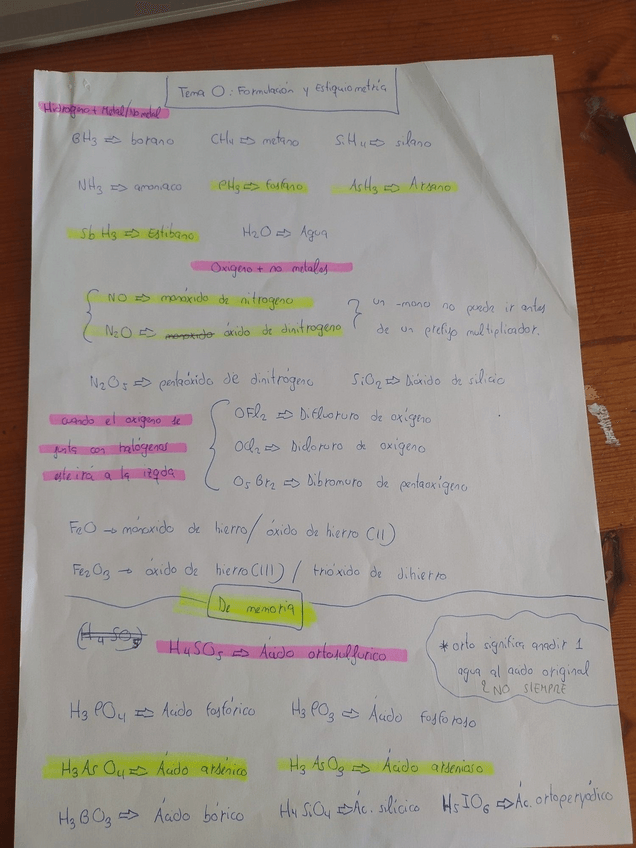 Tema 0: Formulación y Estiquiometría
Hidrógeno + Metal/No metal
BH3 ⇒ borano CH4 ⇒ metano SiH4 ⇒ silano
NH3 ⇒ amoniaco PH3 ⇒ fosfano AsH3 ⇒ Arsano
SbH3 ⇒ Estibano H2O ⇒ Agua
Oxígeno + no metales
NO ⇒ monóxido de nitrógeno
N2O ⇒ monóxido óxido de dinitrógeno
un -mono no puede ir antes
de un prefijo multiplicador.
N2O5 ⇒ pentaóxido de dinitrógeno SiO2 ⇒ Dióxido de silicio
cuando el oxígeno se
junta con halógenos
este irá a la izqda
OFl2 ⇒ Difluoruro de oxígeno
OCl2 ⇒ Dicloruro de oxígeno
O5Br2 ⇒ Dibromuro de pentaoxígeno
FeO → monóxido de hierro / óxido de hierro (II)
Fe2O3 → óxido de hierro (III) / trióxido de dihierro
De memoria
(H4SO5)
H4SO5 ⇒ Ácido ortosulfúrico
* orto significa anadir 1
agua al acido original
NO SIEMPRE
H3PO4 ⇒ Ácido fosfórico H3PO3 ⇒ Ácido fosforoso
H3AsO4 ⇒ Ácido arsénico H3AsO3 ⇒ Ácido arsenioso
H3BO3 ⇒ Ácido bórico H4SiO4 ⇒ Ác. silícico H5IO6 ⇒ Ác. ortoperyódico